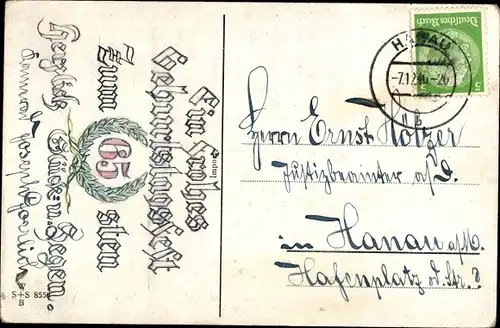 Ein frohes
Geburtstagsfest
Zum 65 sten
Herzlich. Glück u. Segen.
Import
S+S 8556
B
Deutsches Reich
5 5
HANAU
-7.12.40.-20
Herrn Ernst Holzer
Justizbeamter a/D.
in Hanau a/M.
Hafenplatz od. Str.?